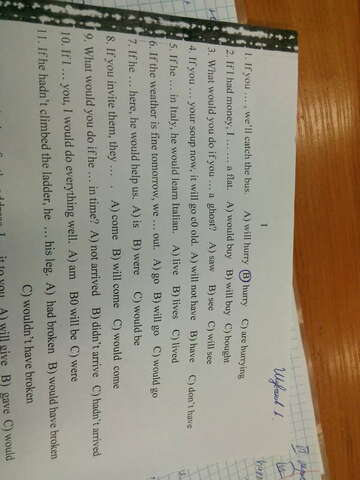 1
1. If you …., we'll catch the bus. A) will hurry B) hurry C) are hurrying
2. If I had money, I …… a flat. A) would buy B) will buy C) bought
3. What would you do if you … a ghost? A) saw B) see C) will see
4. If you … your soup now, it will go c0 old. A) will not have B) have C) don't have
5. If he … in Italy, he would learn Italian. A) live B) lives C) lived
6. If the weather is fine tomorrow, we … out. A) go B) will go C) would go
7. If he … here, he would help us. A) is B) were C) would be
8. If you invite them, they … . A) come B) will come C) would come
9. What would you do if he … in time? A) not arrived B) didn't arrive C) hadn't arrived
10. If I … you, I would do everything well. A) am B0 will be C) were
11. If he hadn't climbed the ladder, he … his leg. A) had broken B) would have broken
C) wouldn't have broken
it to you A) will give B) gave C) would